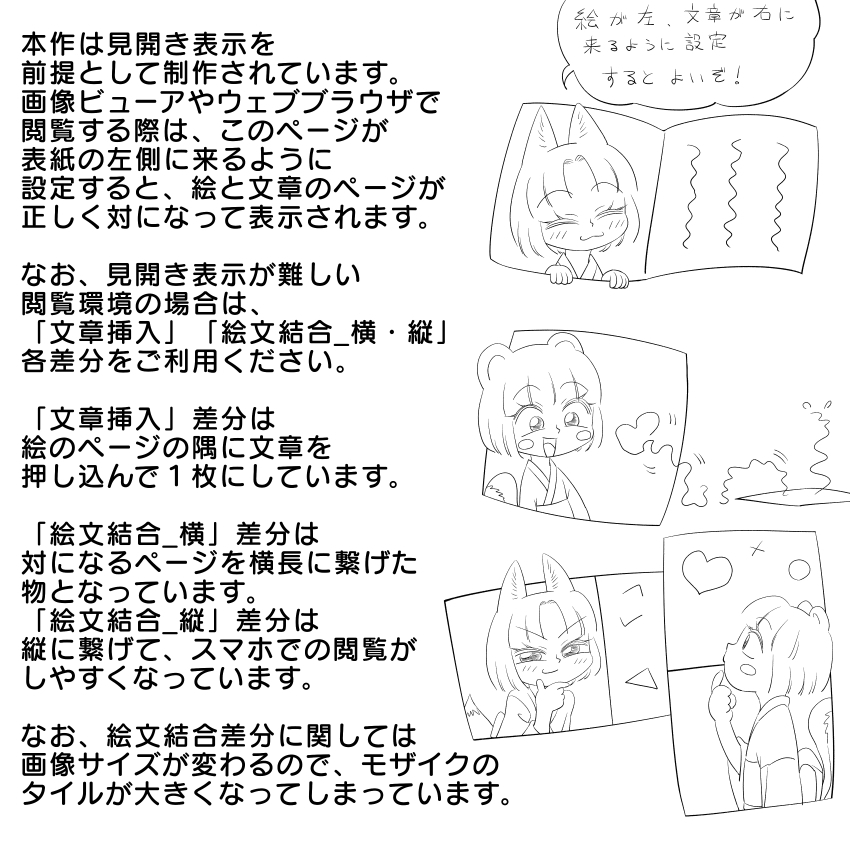 絵が左、文章が右に
来るように設定
するとよいぞ！
本作は見開き表示を
前提として制作されています。
画像ビューアやウェブブラウザで
閲覧する際は、このページが
表紙の左側に来るように
設定すると、絵と文章のページが
正しく対になって表示されます。
なお、見開き表示が難しい
閲覧環境の場合は、
「文章挿入」「絵文結合_横・縦」
各差分をご利用ください。
「文章挿入」差分は
絵のページの隅に文章を
押し込んで１枚にしています。
「絵文結合_横」差分は
対になるページを横長に繋げた
物となっています。
「絵文結合_縦」差分は
縦に繋げて、スマホでの閲覧が
しやすくなっています。
なお、絵文結合差分に関しては
画像サイズが変わるので、モザイクの
タイルが大きくなってしまっています。